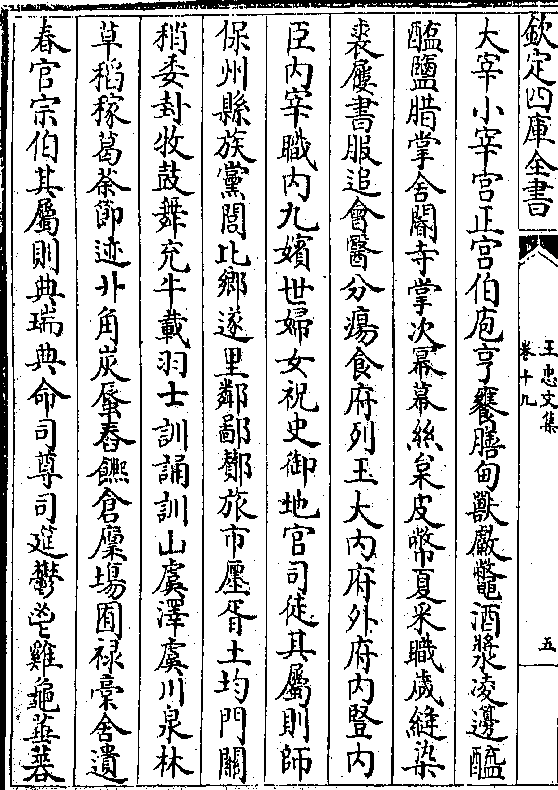 欽定四庫全書
王忠文集
卷十九
五
大宰小宰宫正宫伯庖亨饔膳甸獸䱷鼈酒漿凌籩醢
醯鹽腊掌舍閽寺掌次冪幕絲枲皮幣夏采職嵗縫染
裘屨書服追會醫分瘍食府列玉大内府外府内豎内
臣内宰職内九嬪世婦女祝史御地官司徒其屬則師
保州縣族黨閭比鄉遂里鄰鄙酇旅市廛胥土均門關
稍委封牧鼓舞充牛載羽士訓誦訓山虞澤虞川泉林
草稻稼葛荼節迹丱角炭蜃舂饎倉廩塲囿禄槀舍遺
春官宗伯其屬則典瑞典命司尊司筵鬱鬯雞龜菙蓍